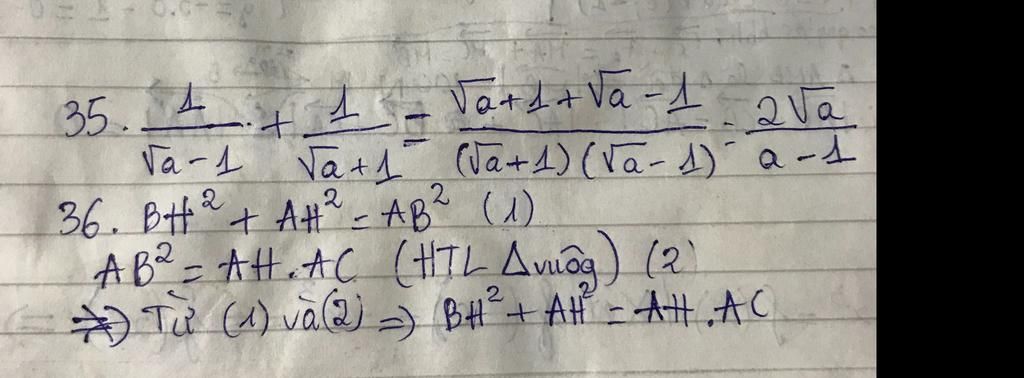 35. 1/(√a - 1) + 1/(√a + 1) = (√a + 1 + √a - 1)/((√a + 1)(√a - 1)) = 2√a/(a - 1)
36. BH² + AH² = AB² (1)
AB² = AH.AC (HTL Δvuôg) (2)
=> Từ (1) và (2) => BH² + AH² = AH.AC